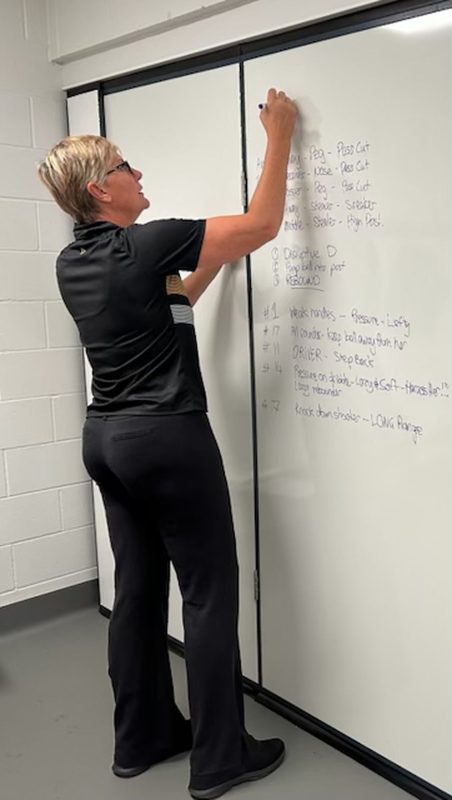 Peg - Pass Cut
Nose - Pass Cut
Peg - Pass Cut
Stealer - Stealer
Middle - Stealer - High Post
① Disruptive D
② Pump ball into post
③ REBOUND
#1 Weak handles - Pressure - Lefty
#17 All rounder - keep ball away from her
#11 DRIVER - Step Back
#14 Pressure on - Long & Soft - Harass Her!!!
Long rebounder
#7 Knock down shooter - LONG Range